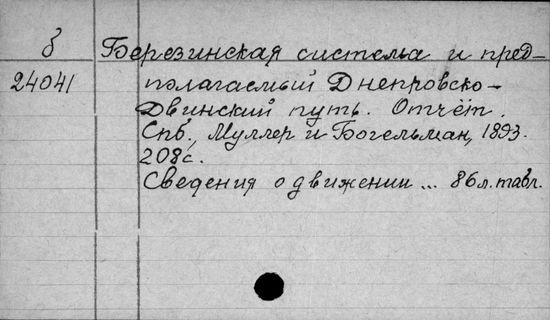 б Березинская система и пред-
24041 полагаемый Днепровско-
Двинский путь. Отчёт.
Спб., Муллер и Богельман, 1893.
208с.
Сведения о движении ... 86л. табл.